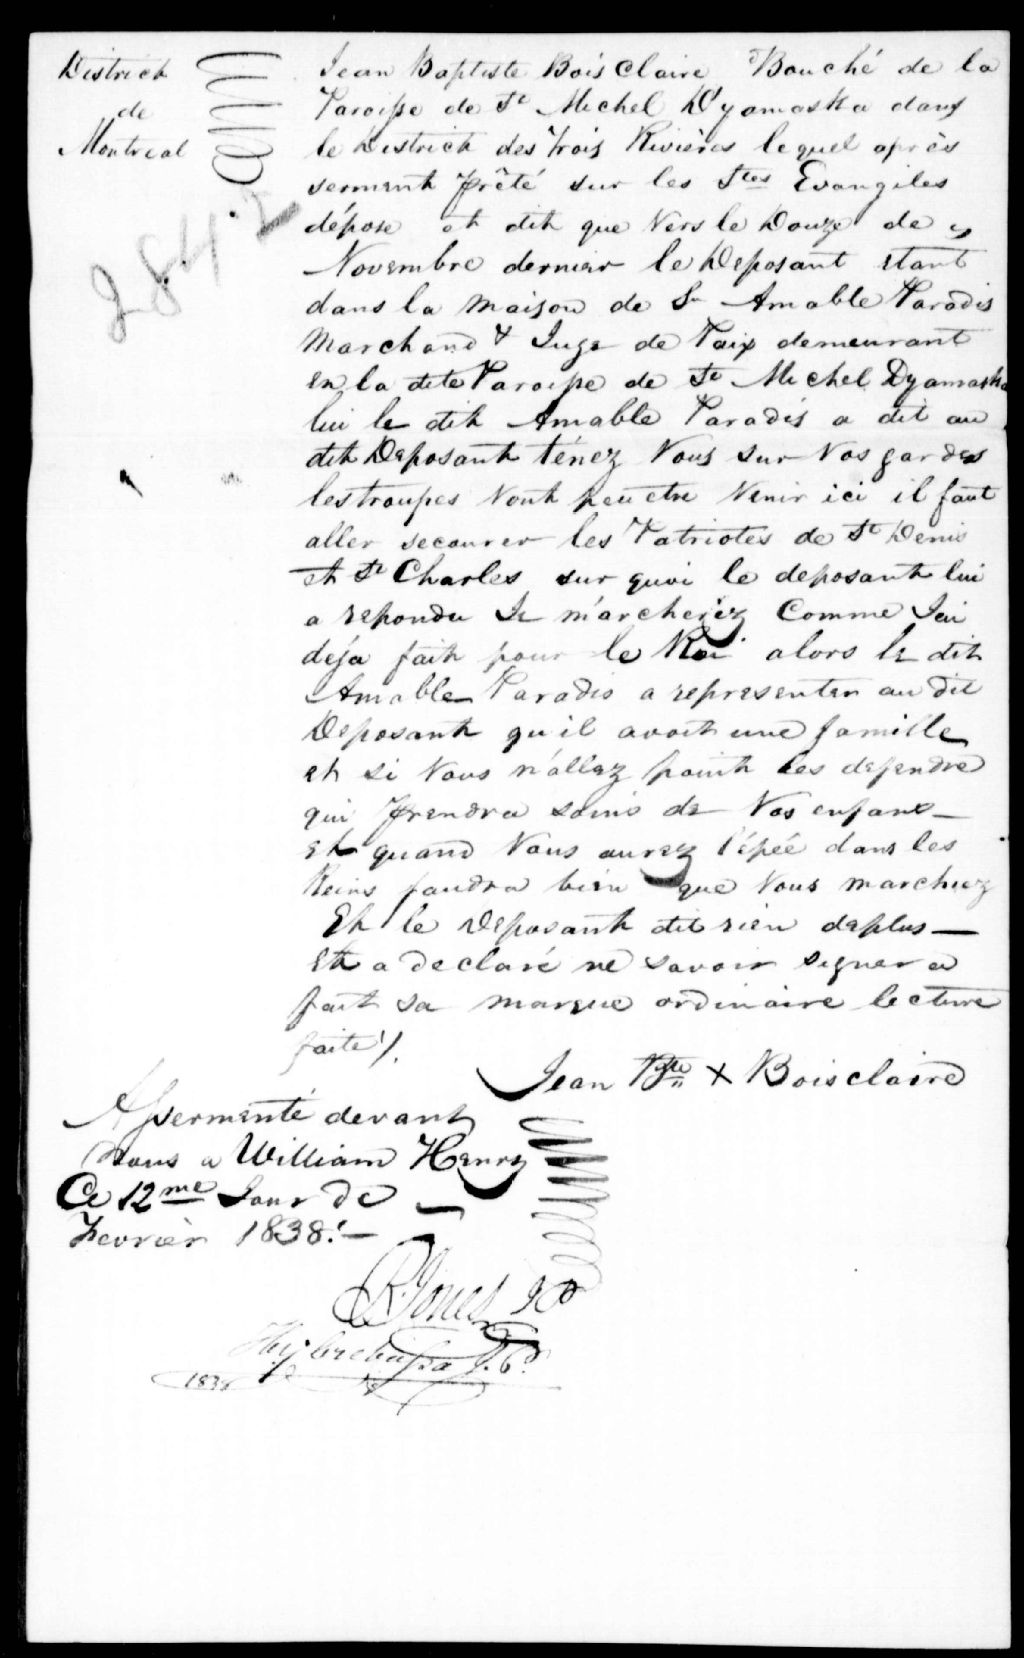 District
de
Montreal
2842
Jean Baptiste Bois Claire Bouché de la
Paroisse de St Michel D'yamaska dans
le District des trois Rivières lequel après
serment prêté sur les Stes Evangiles
dépose et dit que Vers le Douze de
Novembre dernier le Deposant etant
dans la maison de Sr Amable Paradis
Marchand & Juge de Paix demeurant
en la dite Paroisse de St Michel Dyamaska
lui le dit Amable Paradis a dit au
dit Deposant ténez Vous sur Vos gardes
les troupes Vont peu etre Venir ici il faut
aller secourer les Patriotes de St Denis
et St Charles sur quoi le deposant lui
a repondu Je m'archeréz Comme Jai
déja fait pour le Roi alors le dit
Amable Paradis a representer au dit
Deposant qu'il avoit une famille
et si Vous n'allez point les defendre
qui Prendra soins de Vos enfans
Et quand Vous aurez l'épée dans les
Reins faudra bien que Vous marchiez
Et le Deposant dit rien deplus
Et a declaré ne savoir signer a
fait sa marque ordinaire lecture
faite /.
Jean Bte X Boisclaire
Assermenté devant
Nous a William Henry
Ce 12me Jour de
Fevrièr 1838.
R. Jones JP
J. P.
1838